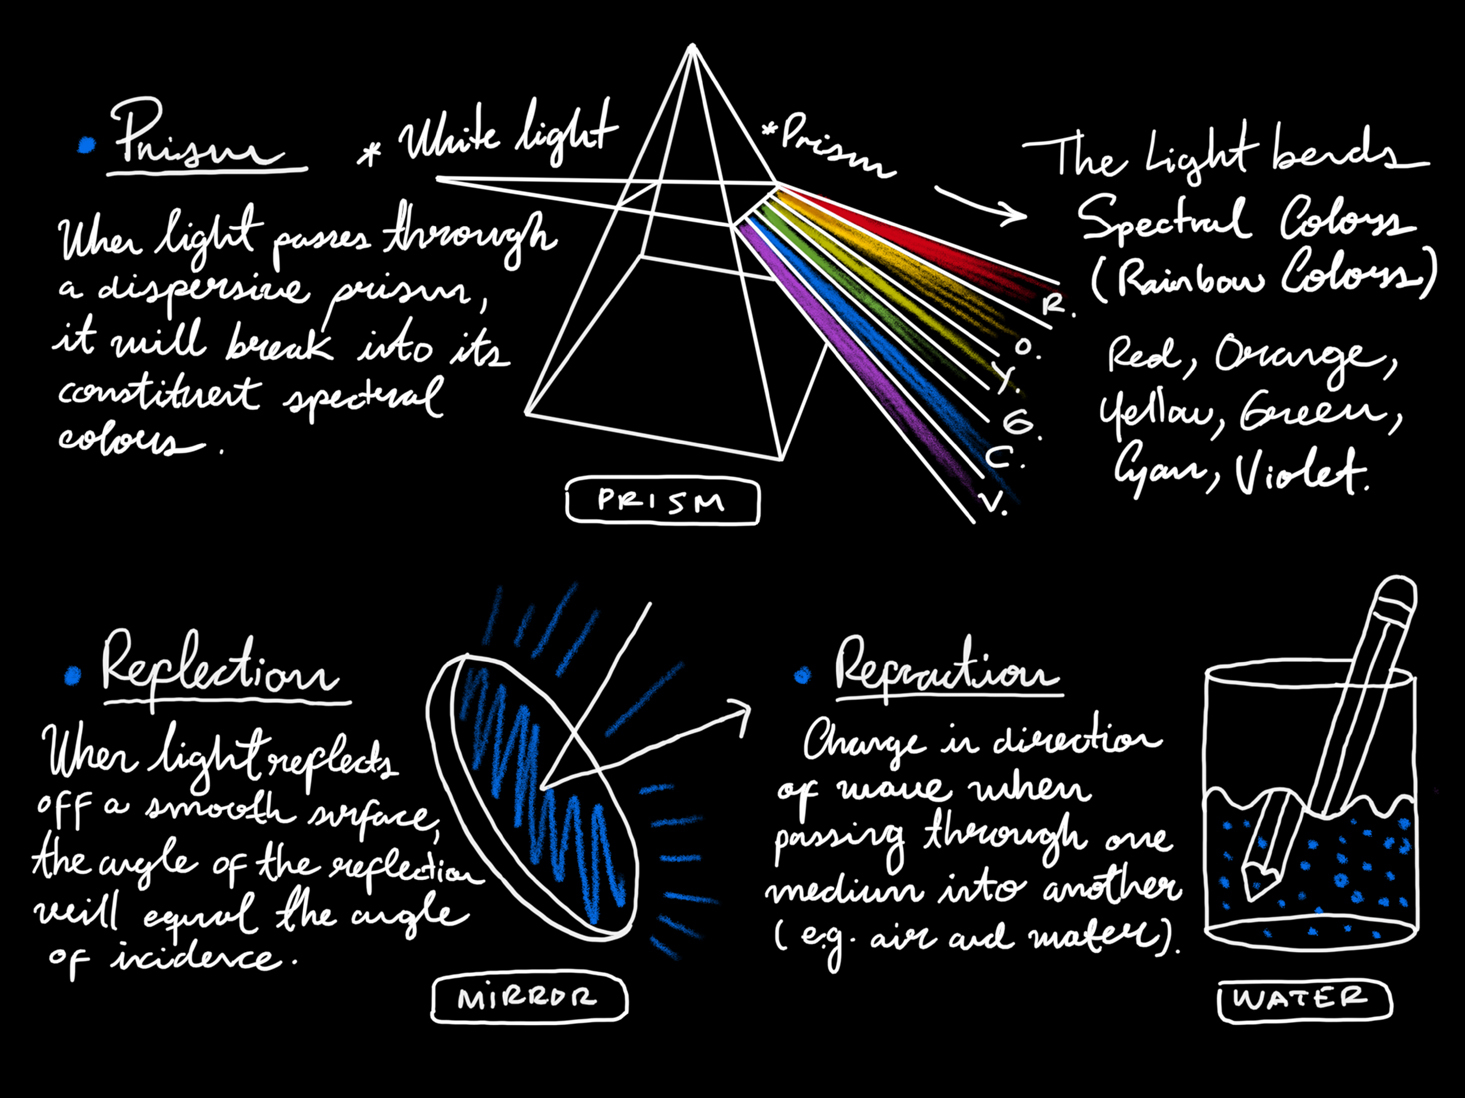 Prism
When light passes through
a dispersive prism,
it will break into its
constituent spectral
colours.
* White light
*Prism
The Light bends
Spectral Colours
(Rainbow Colours)
Red, Orange,
Yellow, Green,
Cyan, Violet.
R.
O.
Y.
G.
C.
V.
PRISM
Reflection
When light reflects
off a smooth surface,
the angle of the reflection
will equal the angle
of incidence.
MIRROR
Refraction
Change in direction
of wave when
passing through one
medium into another
(e.g. air and water).
WATER